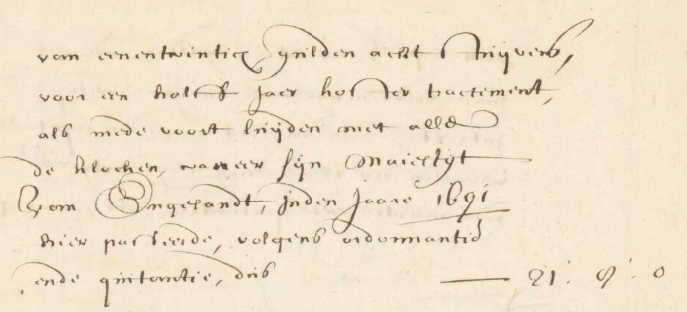 van eenentwintich gulden acht stuijvers,
voor een halff jaer koster tractement,
als mede voort luijden met alle
de klocken, waneer sijn Maiestijt
van Engelandt, inden jaare 1691
hier passeerde, volgens ordonnantie
ende quitantie, dus — 21: 8: 0